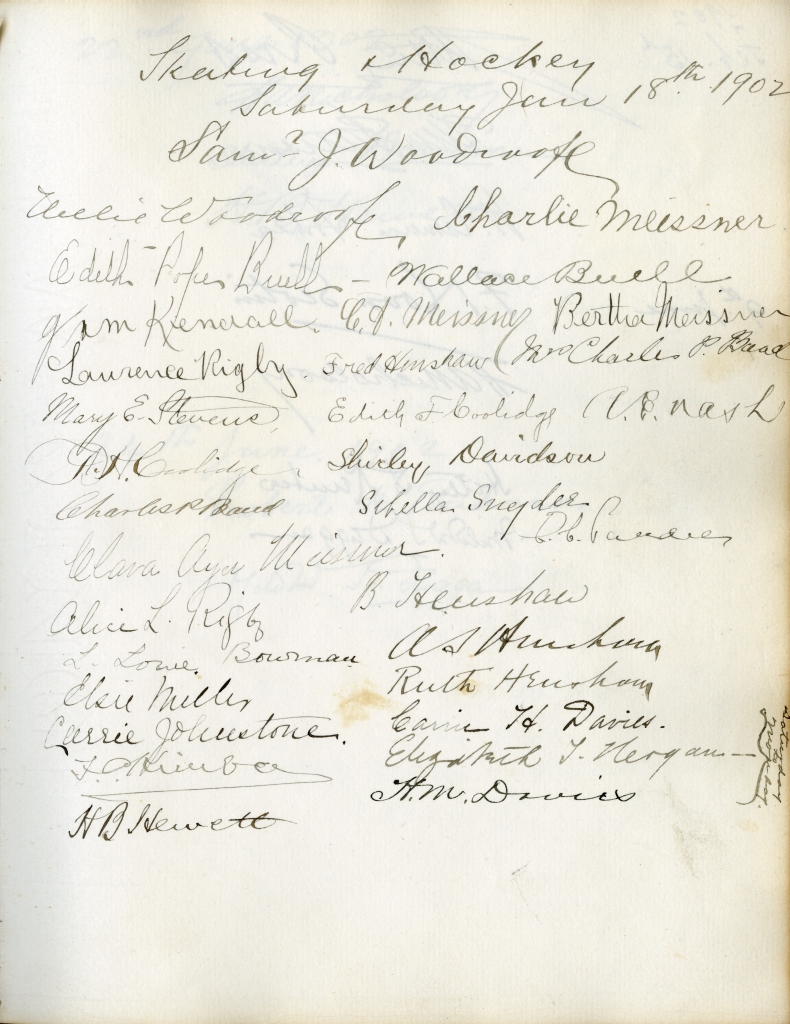 Skating & Hockey
Saturday Jan 18th 1902
Sam'l J. Woodroofe
Nellie Woodroofe, Charlie Meissner
Edith Pope Buell - Wallace Buell
Kendall. C. A. Meissner Bertha Meissner
Laurence Rigby. Fred Henshaw Mrs Charles P. Band
Mary E. Stevens, Edith F Coolidge A. P. Nash
A. H. Coolidge, Shirley Davidson
Charles P. Band Sibella Snyder
C. C.
Clara Meissner.
Alice L. Rigby B Henshaw
L. Lowe Bowman A S Henshaw
Elsie Miller Ruth Henshaw
Carrie Johnstone. Carrie H. Davies.
Elizabeth T. -
H. M. Davies
H B Hewett